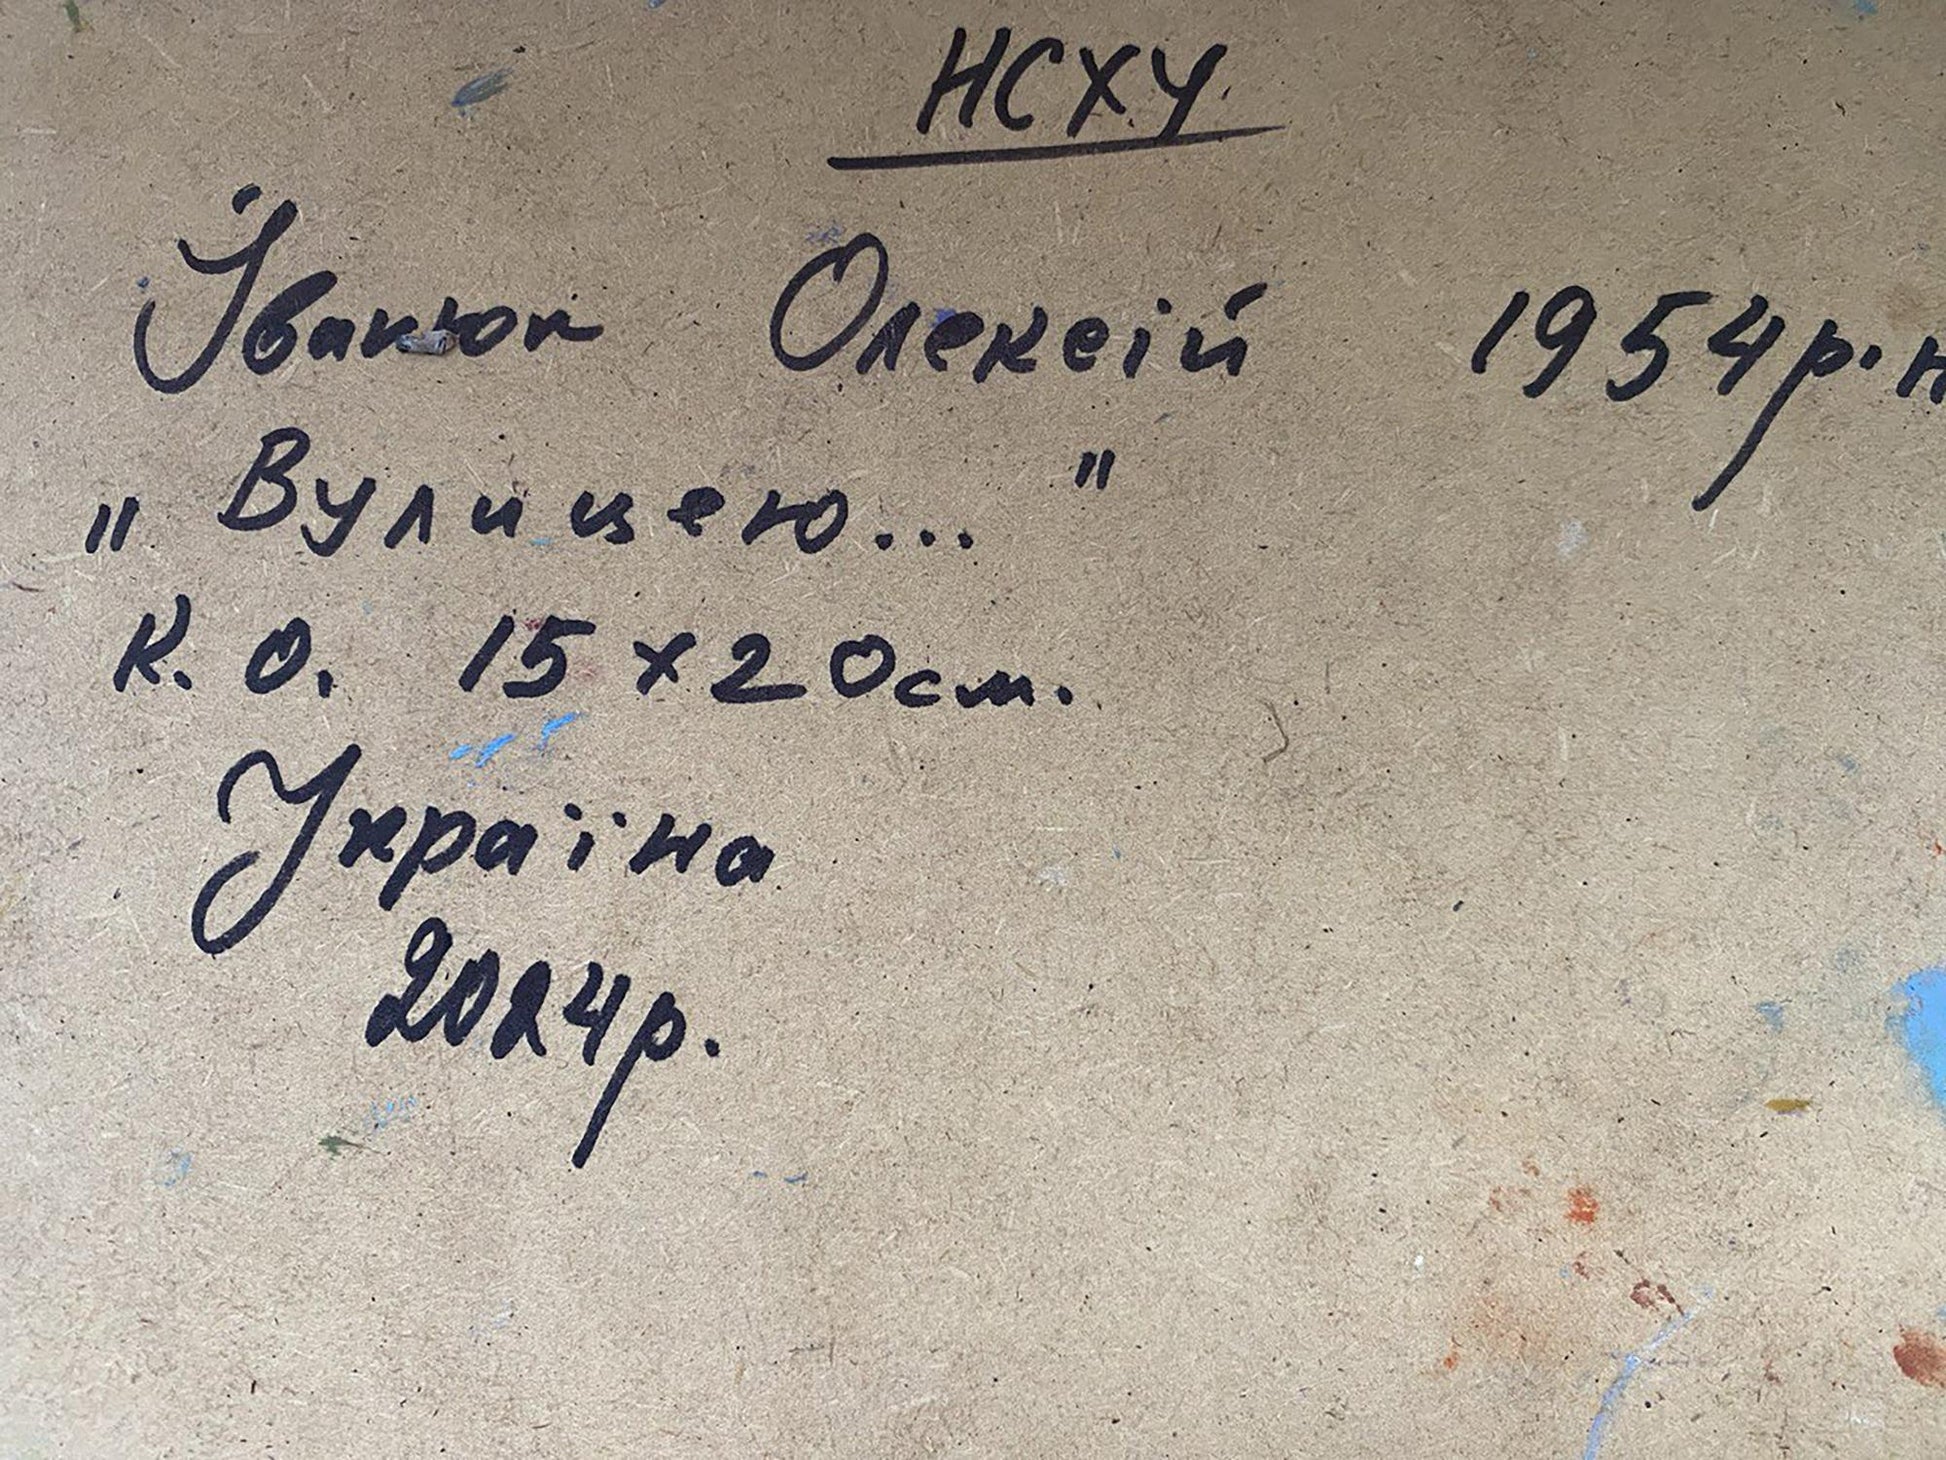 НСХУ.
Іванюк Олексій 1954р.н
„Вулицею..."
К. О. 15х20см.
Україна
2024р.